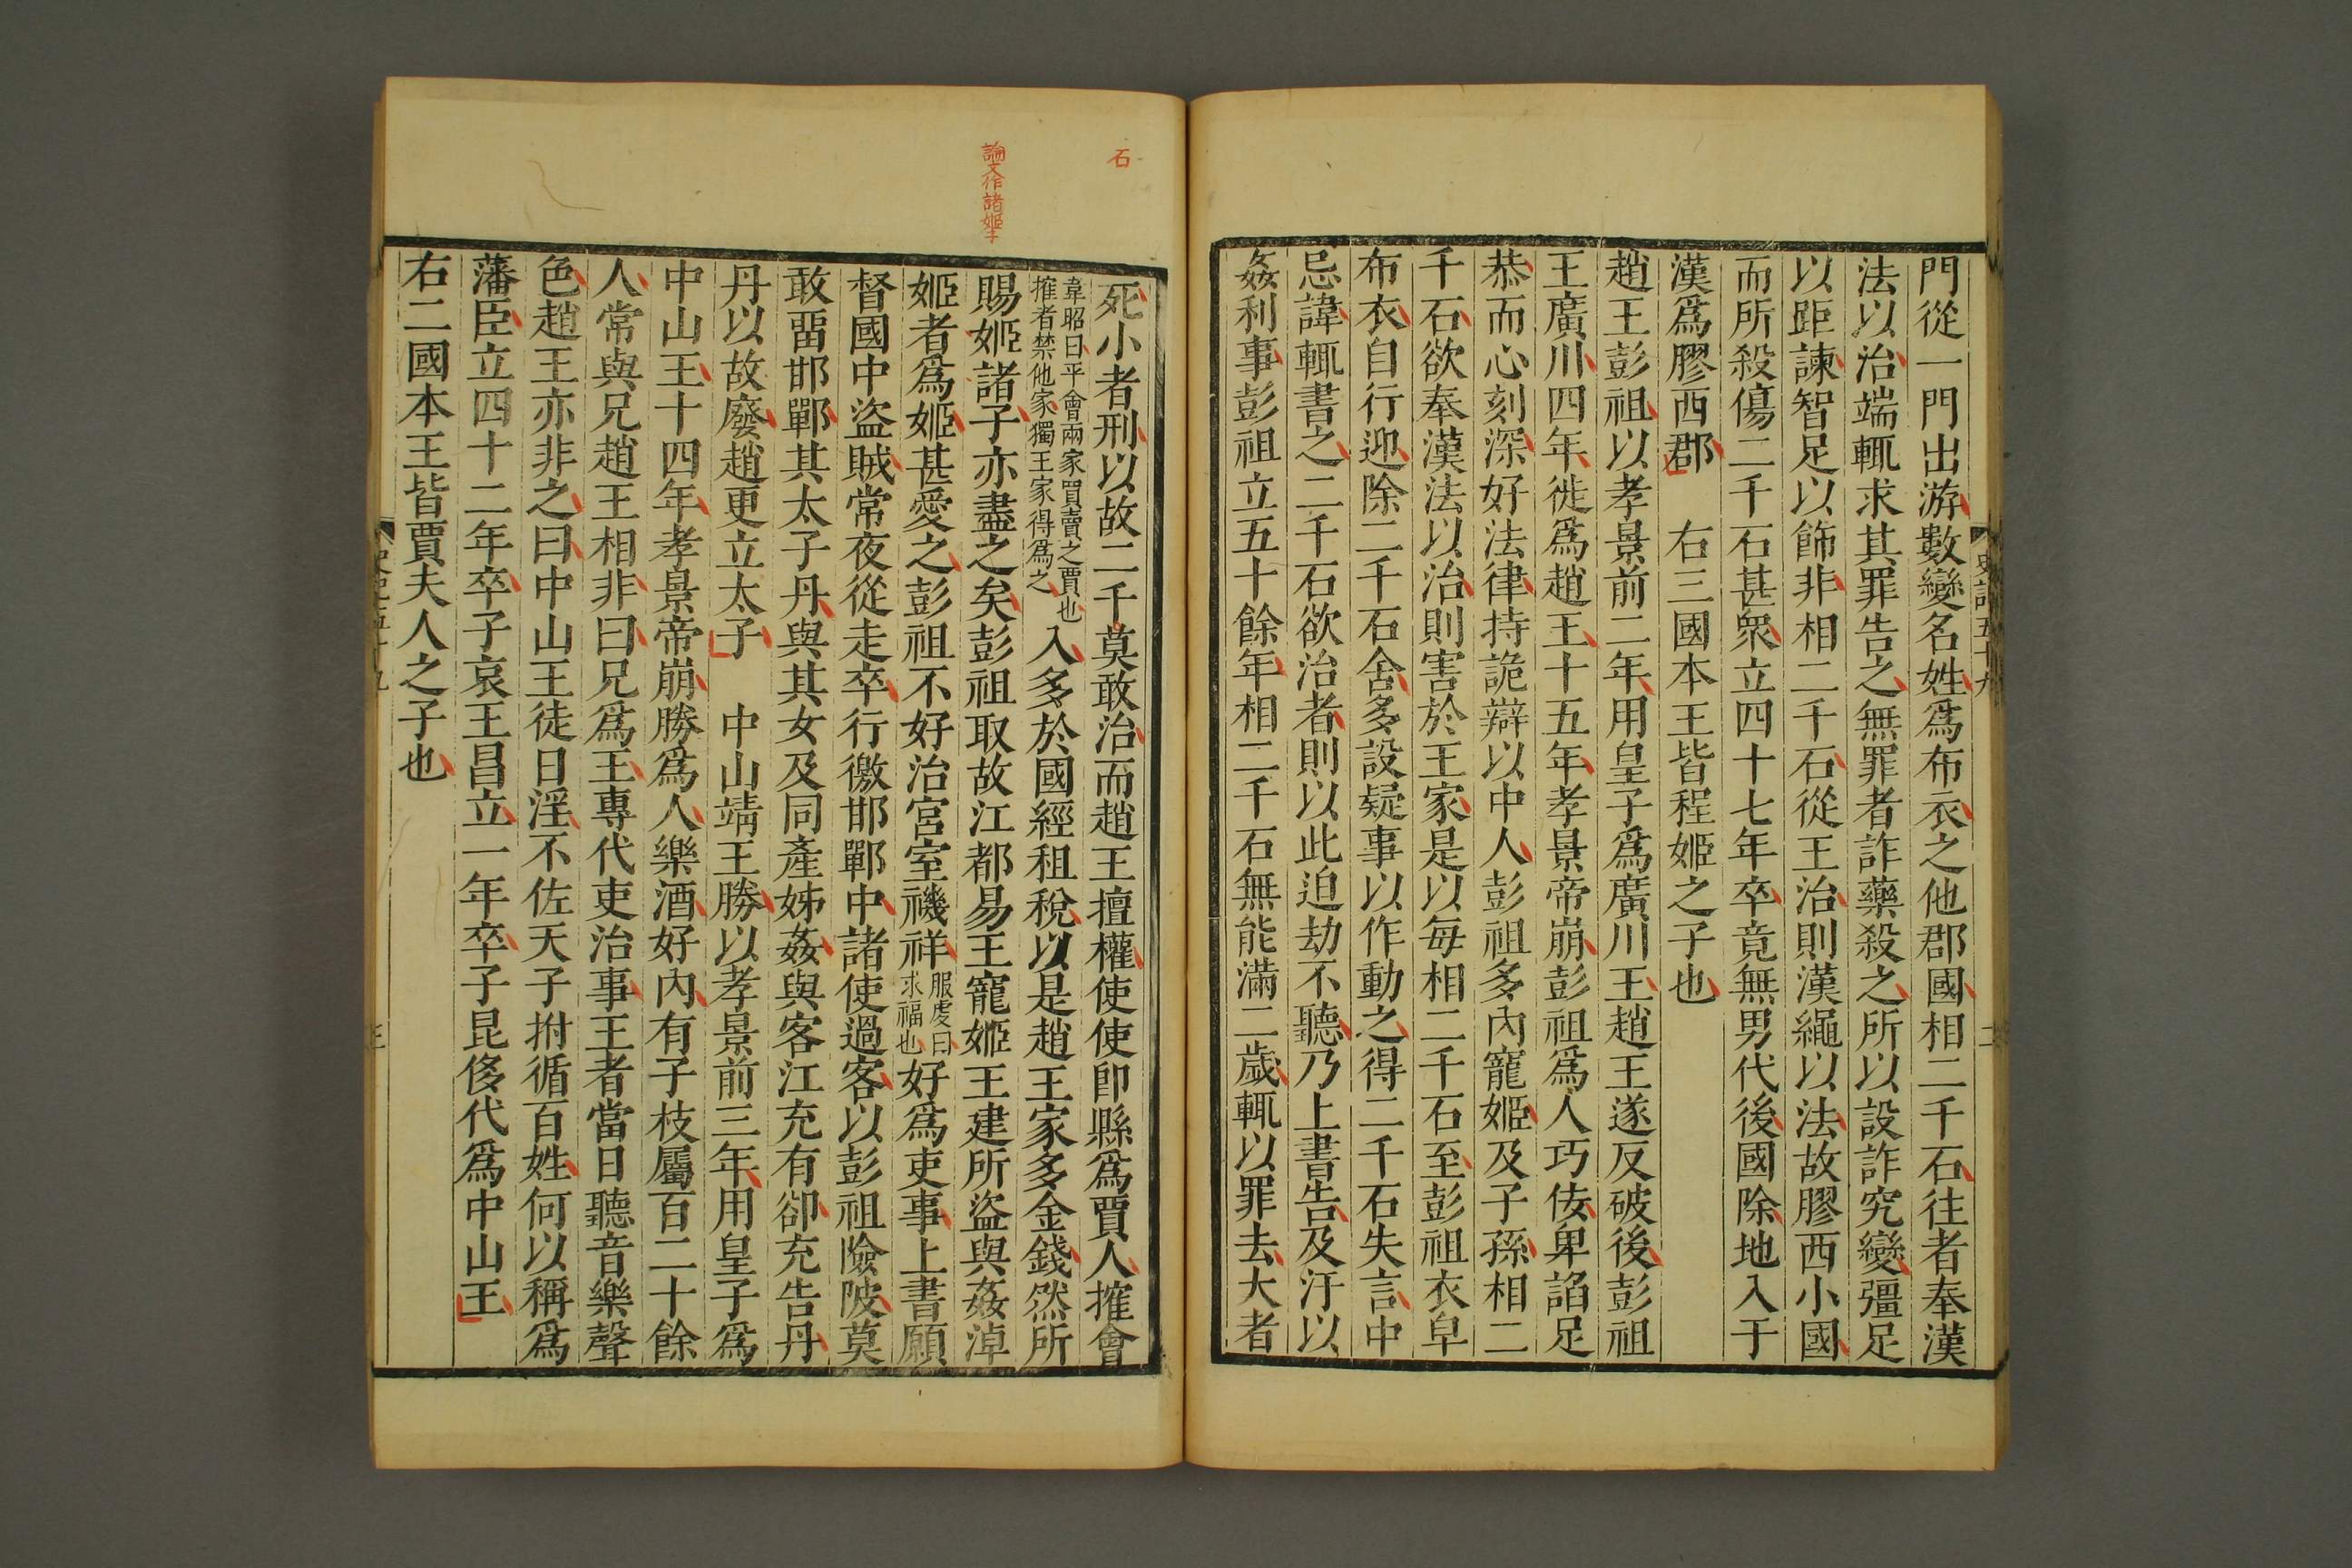 門從一門出游數變名姓爲布衣之他郡國相二千石往者奉漢
法以治端輒求其罪告之無罪者詐藥殺之所以設詐究變彊足
以距諫智足以飾非相二千石從王治則漢繩以法故膠西小國
而所殺傷二千石甚衆立四十七年卒竟無男代後國除地入于
漢爲膠西郡　右三國本王皆程姬之子也
趙王彭祖以孝景前二年用皇子爲廣川王趙王遂反破後彭祖
王廣川四年徙爲趙王十五年孝景帝崩彭祖爲人巧佞卑諂足
恭而心刻深好法律持詭辯以中人彭祖多內寵姬及子孫相二
千石欲奉漢法以治則害於王家是以每相二千石至彭祖衣皁
布衣自行迎除二千石舍多設疑事以作動之得二千石失言中
忌諱輒書之二千石欲治者則以此迫劫不聽乃上書告及汙以
姦利事彭祖立五十餘年相二千石無能滿二歲輒以罪去大者
史記五十九
二
石
論文作諸姬子
死小者刑以故二千莫敢治而趙王擅權使使卽縣爲賈人搉會
韋昭曰平會兩家買賣之賈也
搉者禁他家獨王家得爲之
入多於國經租稅以是趙王家多金錢然所
賜姬諸子亦盡之矣彭祖取故江都易王寵姬王建所盜與姦淖
姬者爲姬甚愛之彭祖不好治宮室禨祥
服虔曰
求福也
好爲吏事上書願
督國中盜賊常夜從走卒行徼邯鄲中諸使過客以彭祖險陂莫
敢畱邯鄲其太子丹與其女及同產姊姦與客江充有卻充告丹
丹以故廢趙更立太子　中山靖王勝以孝景前三年用皇子爲
中山王十四年孝景帝崩勝爲人樂酒好內有子枝屬百二十餘
人常與兄趙王相非曰兄爲王專代吏治事王者當日聽音樂聲
色趙王亦非之曰中山王徒日淫不佐天子拊循百姓何以稱爲
藩臣立四十二年卒子哀王昌立一年卒子昆侈代爲中山王
右二國本王皆賈夫人之子也
史記五十九
三